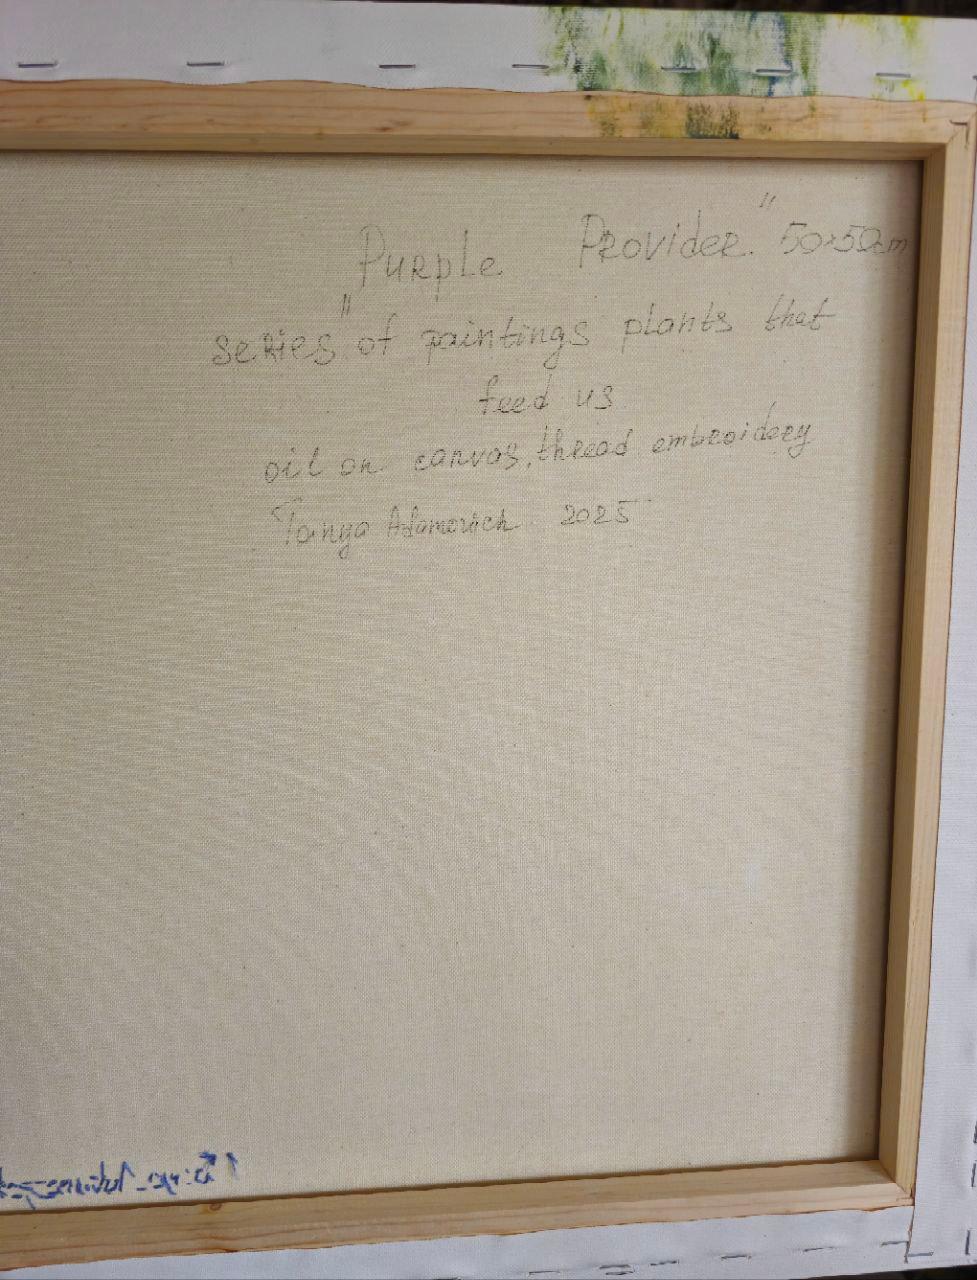 "Purple Provider" 50×50cm
series of paintings plants that
feed us
oil on canvas, thread embroidery
Tanya Adamovich 2025